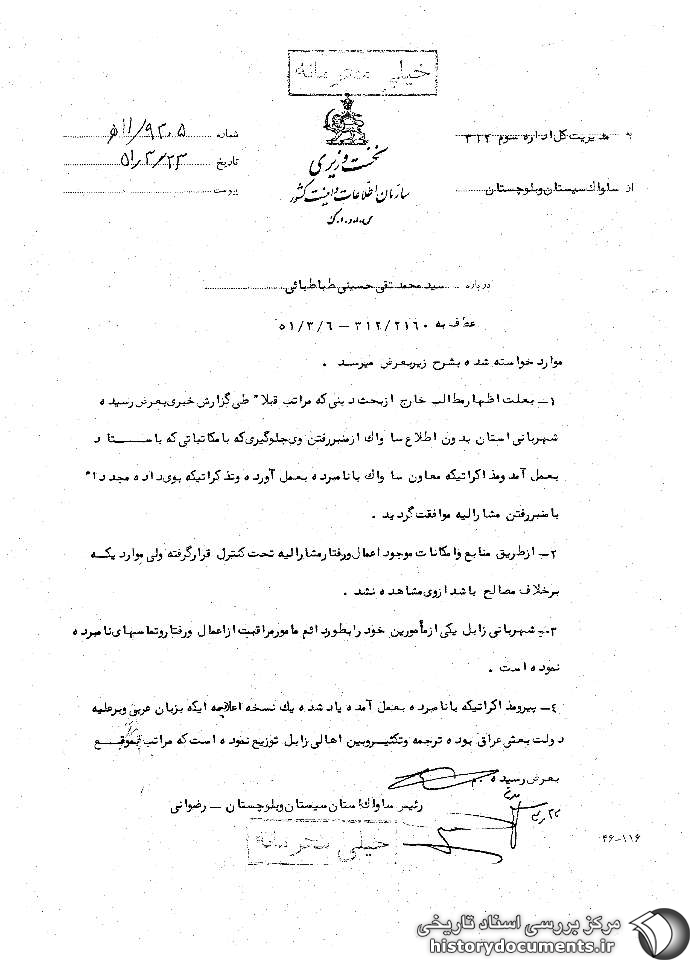 خیلی محرمانه
به مدیریت کل اداره سوم ۳۱۲
از ساواک سیستان وبلوچستان
نخست وزیری
سازمان اطلاعات وامنیت کشور
س.ا.و.ا.ک
شماره ۹۳۰۵/۱۱ﻫ
تاریخ ۵۱/۳/۲۳
پیوست
درباره سید محمد تقی حسینی طباطبائی
عطف به ۳۱۲/۲۱۶۰ – ۵۱/۳/۶
موارد خواسته شده بشرح زیربعرض میرسد .
۱– بعلت اظهارمطالب خارج ازبحث دینی که مراتب قبلا" طی گزارش خبری بعرض رسیده
شهربانی استان بدون اطلاع ساواک ازمنبررفتن وی جلوگیری که بامکاتباتی که باستاد
بعمل آمد ومذاکراتیکه معاون ساواک بانامبرده بعمل آورده وتذکراتیکه بوی داده مجددا"
بامنبررفتن مشارالیه موافقت گردید .
۲– ازطریق منابع وامکانات موجود اعمال ورفتارمشارالیه تحت کنترل قرارگرفته ولی مواردیکه
برخلاف مصالح باشد ازوی مشاهده نشد .
۳– شهربانی زابل یکی ازمأمورین خود رابطوردائم مامورمراقبت ازاعمال ورفتاروتماسهای نامبرده
نموده است .
۴– پیرومذاکراتیکه بانامبرده بعمل آمده یاد شده یک نسخه اعلامیه ایکه بزبان عربی وبرعلیه
دولت بعثی عراق بوده ترجمه وتکثیروبین اهالی زابل توزیع نموده است که مراتب بموقع
بعرض رسیده .م
رئیس ساواک استان سیستان وبلوچستان – رضوانی
۴۶-۱۱۶
خیلی محرمانه
مرکز بررسی اسناد تاریخی
historydocuments.ir